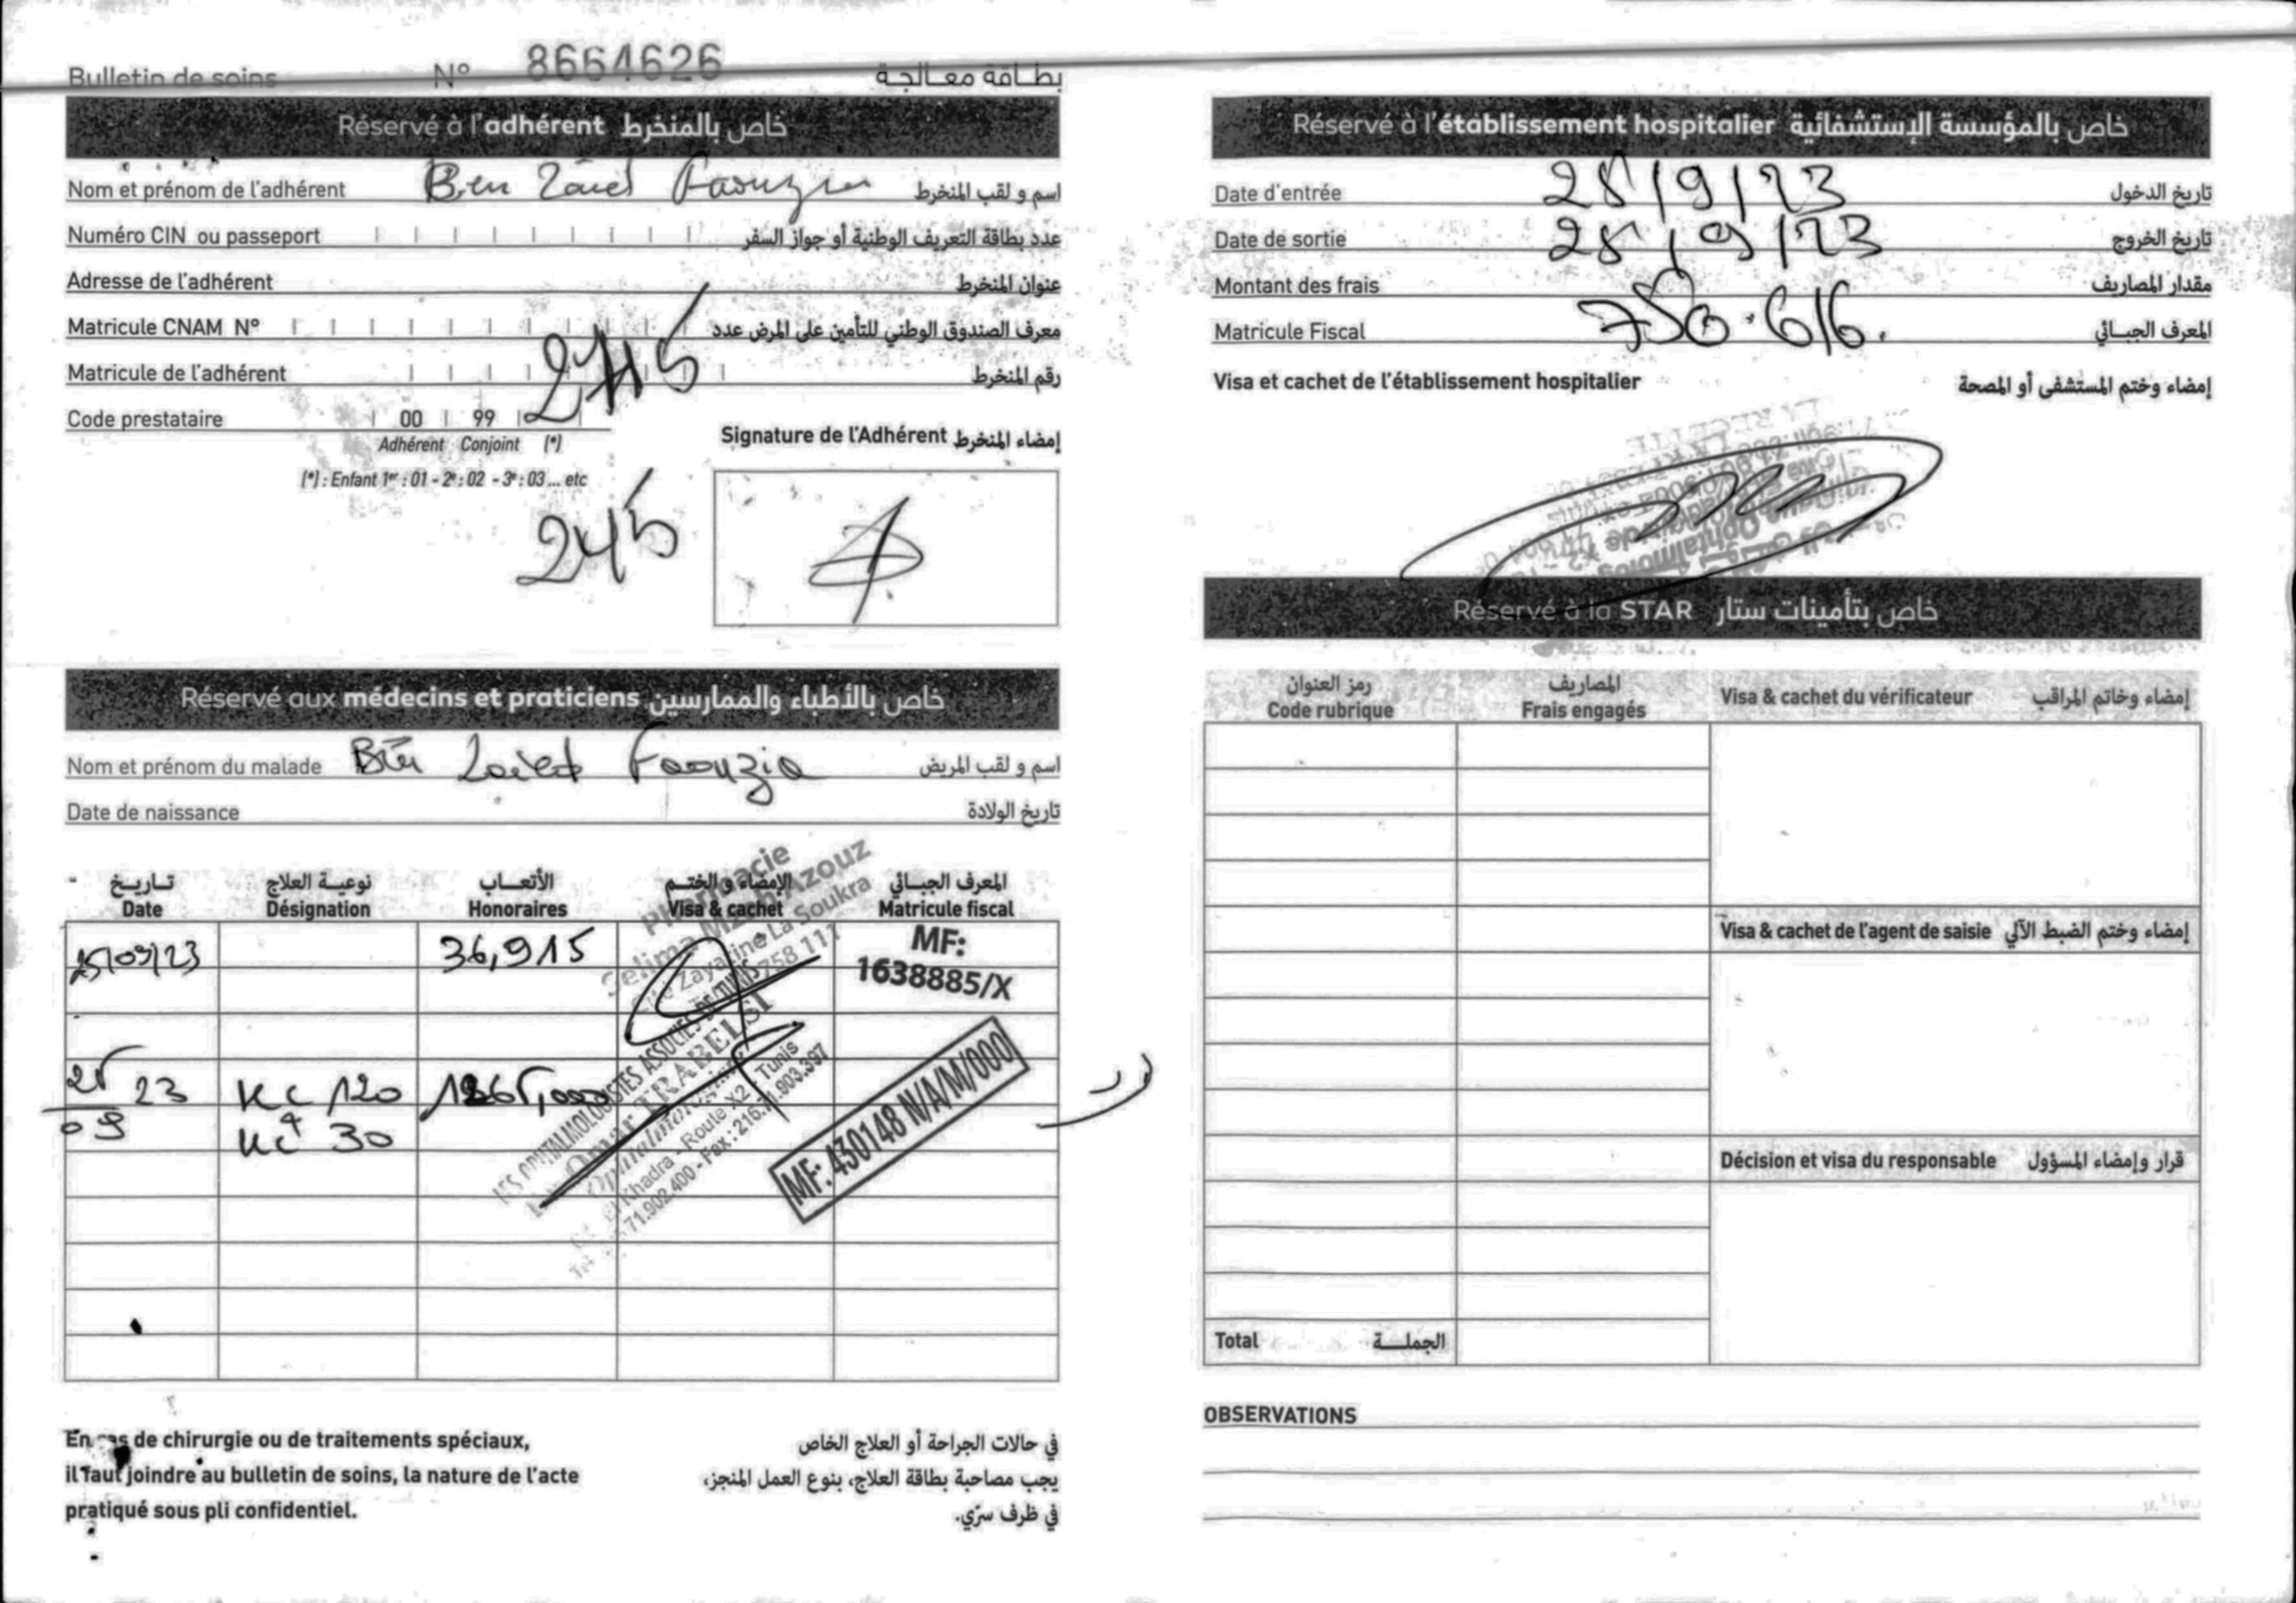 Bulletin de soins N° 8664626 بطاقة معالجة
Réservé à l'adhérent خاص بالمنخرط
Nom et prénom de l'adhérent Ben Zaied Faouzia اسم و لقب المنخرط
Numéro CIN ou passeport عدد بطاقة التعريف الوطنية أو جواز السفر
Adresse de l'adhérent عنوان المنخرط
Matricule CNAM N° معرف الصندوق الوطني للتأمين على المرض عدد
Matricule de l'adhérent رقم المنخرط
Code prestataire 00 99
Adhérent Conjoint (*)
(*) : Enfant 1er : 01 - 2e : 02 - 3e : 03 ... etc
Signature de l'Adhérent إمضاء المنخرط
245
Réservé aux médecins et praticiens خاص بالأطباء والممارسين
Nom et prénom du malade Ben Zaied Faouzia اسم و لقب المريض
Date de naissance تاريخ الولادة
تاريخ نوعية العلاج الأتعاب الإمضاء والختم المعرف الجبائي
Date Désignation Honoraires Visa & cachet Matricule fiscal
25/09/23 36,915 MF:
1638885/X
Pharmacie
Selima Mzali Azouz
Zayatine La Soukra
758 111
25 23 Kc 120
09 Kc 30
LES OPHTALMOLOGISTES ASSOCIES DE TUNIS
Omar TRABELSI
Ophtalmologiste
El Khadra - Route X2 - Tunis
71.902.400 - Fax : 216.71.903.397
MF: 430148 N/A/M/000
En cas de chirurgie ou de traitements spéciaux,
il faut joindre au bulletin de soins, la nature de l'acte
pratiqué sous pli confidentiel.
في حالات الجراحة أو العلاج الخاص
يجب مصاحبة بطاقة العلاج، بنوع العمل المنجز،
في ظرف سرّي.
Réservé à l'établissement hospitalier خاص بالمؤسسة الإستشفائية
Date d'entrée 25/9/23 تاريخ الدخول
Date de sortie 25/09/23 تاريخ الخروج
Montant des frais 750.616. مقدار المصاريف
Matricule Fiscal المعرف الجبائي
Visa et cachet de l'établissement hospitalier إمضاء وختم المستشفى أو المصحة
Réservé à la STAR خاص بتأمينات ستار
رمز العنوان المصاريف
Code rubrique Frais engagés Visa & cachet du vérificateur إمضاء وخاتم المراقب
Visa & cachet de l'agent de saisie إمضاء وختم الضبط الآلي
Décision et visa du responsable قرار وإمضاء المسؤول
Total الجملة
OBSERVATIONS